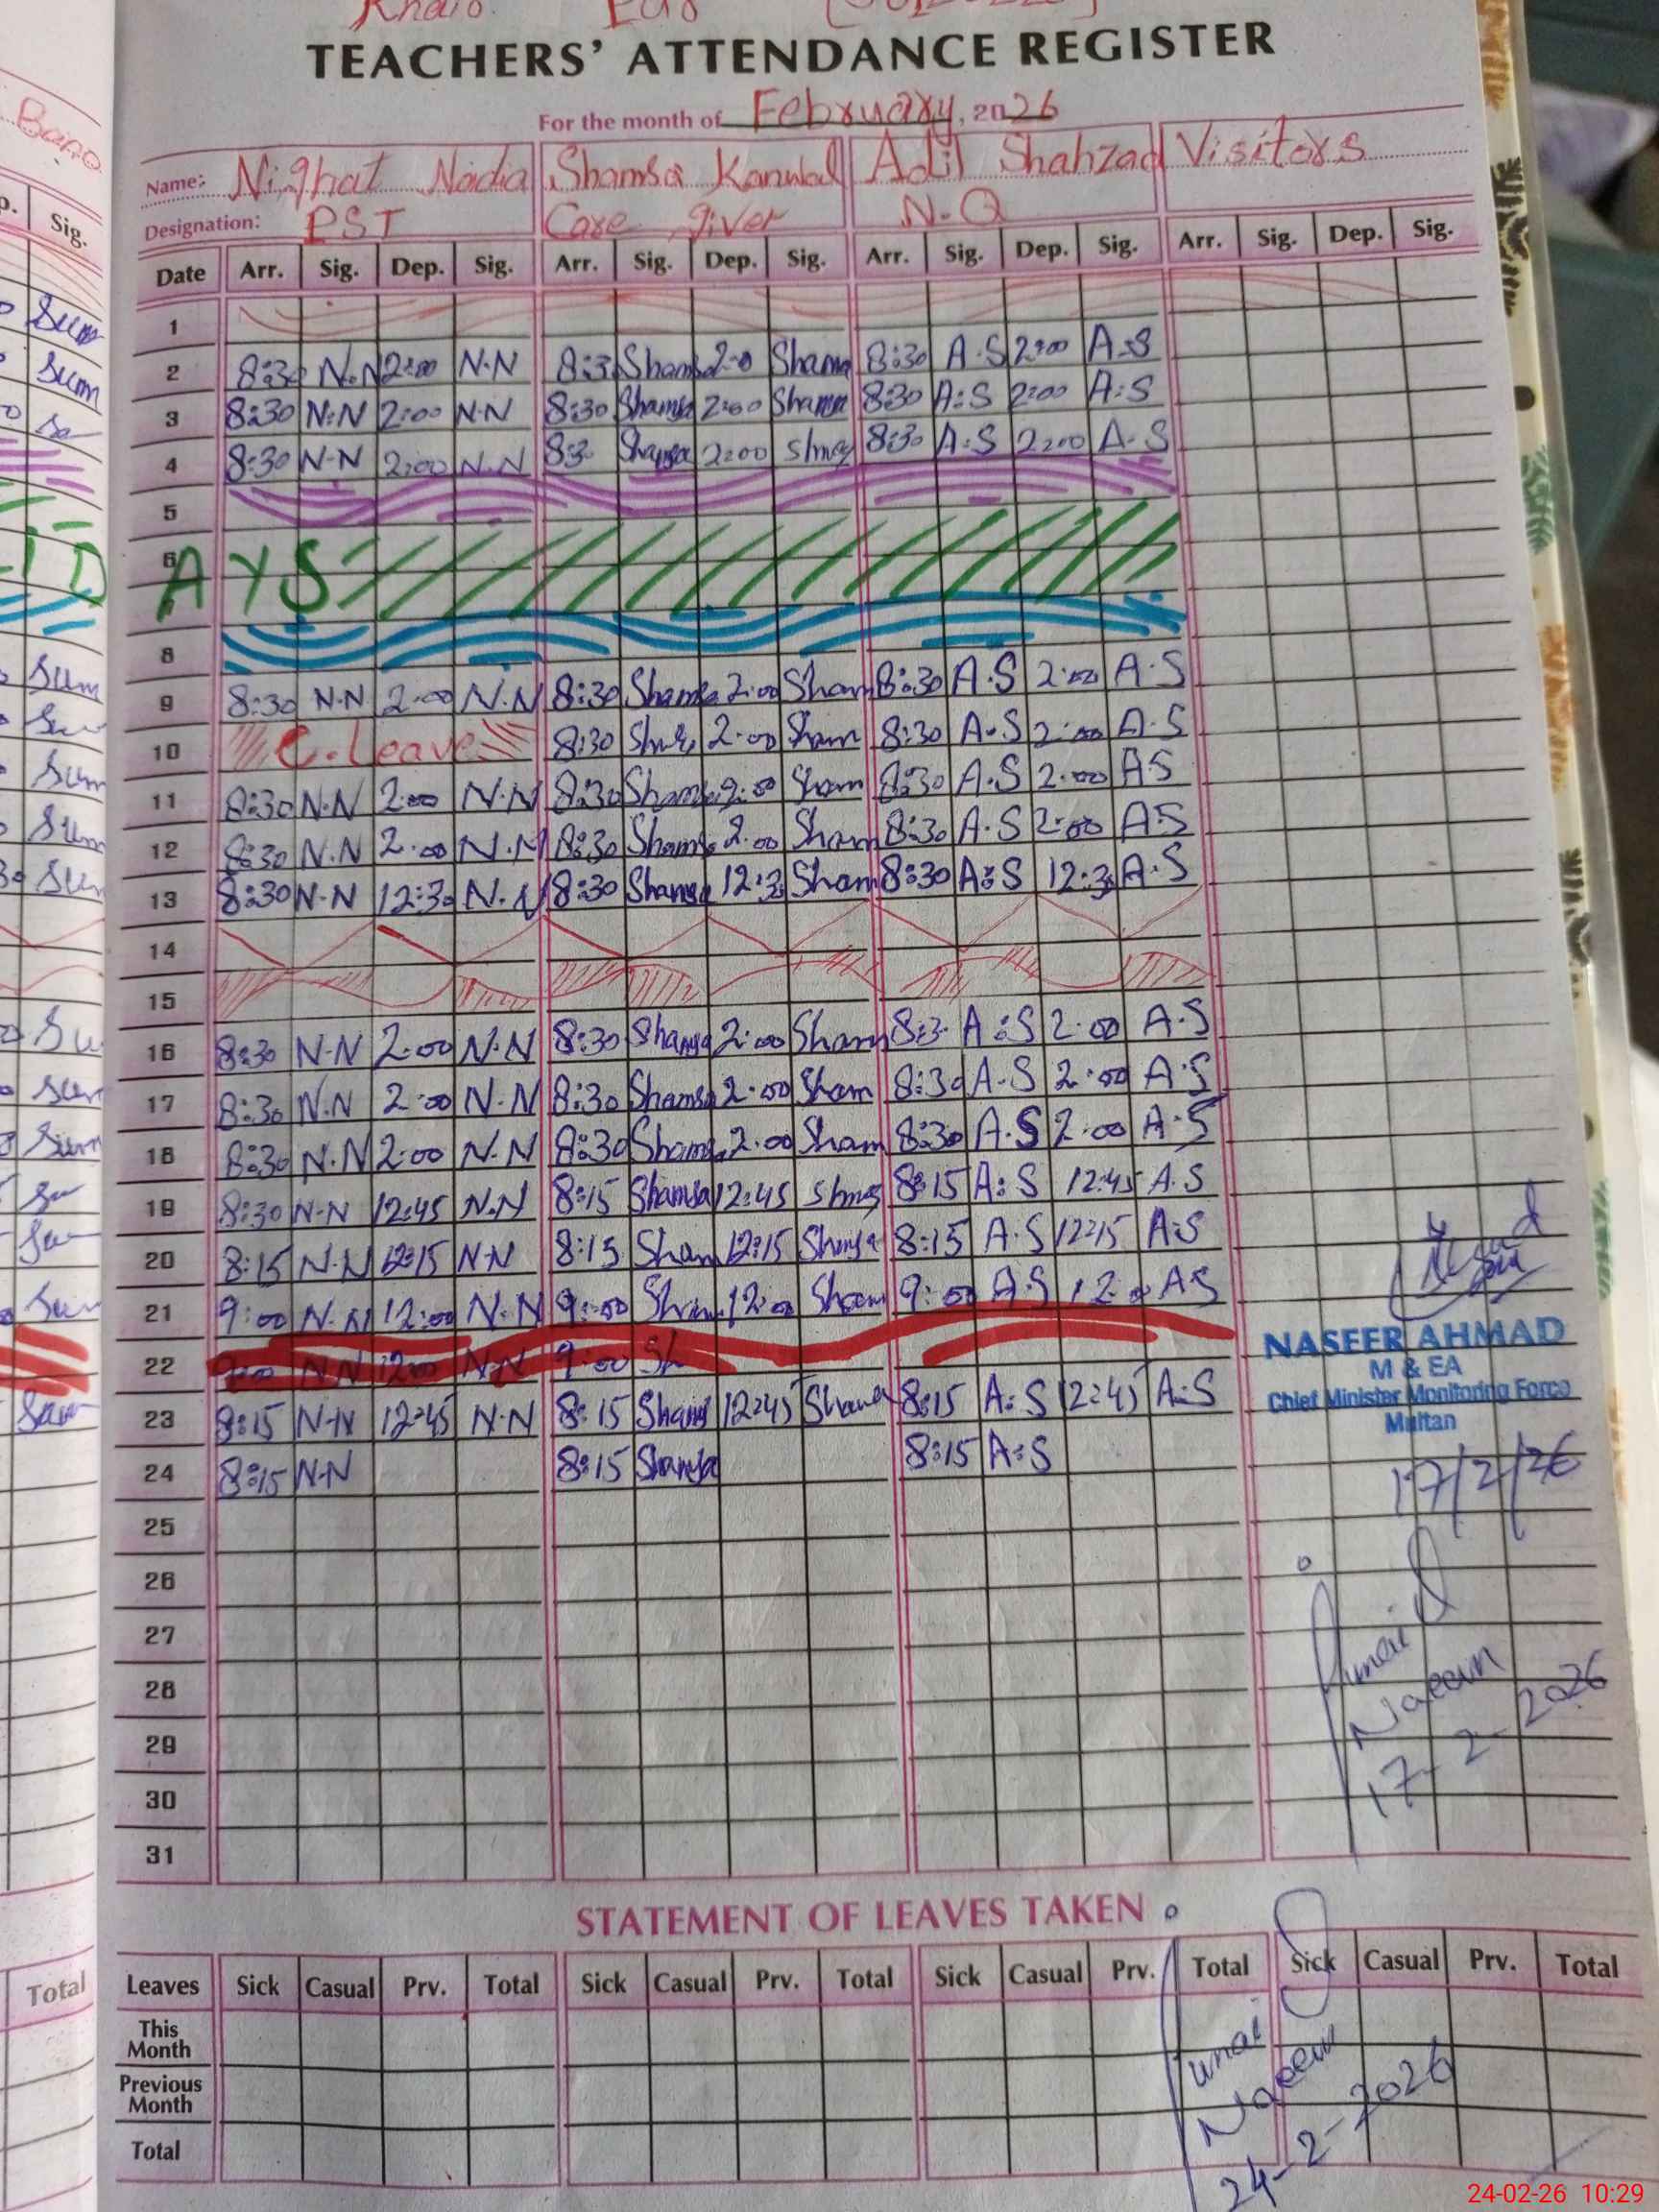 TEACHERS' ATTENDANCE REGISTER
For the month of February, 2026
Name: Nighat Nadia Shamsa Kanwal Adil Shahzad Visitors
Designation: PST Care giver N.Q
Date Arr. Sig. Dep. Sig. Arr. Sig. Dep. Sig. Arr. Sig. Dep. Sig. Arr. Sig. Dep. Sig.
1
2 8:30 N.N 2:00 N.N 8:3 Shams 2:0 Shama 8:30 A.S 2:00 A:S
3 8:30 N:N 2:00 N.N 8:30 Shamsa 2:00 Shama 830 A:S 2:00 A:S
4 8:30 N-N 2:00 N.N 83 Shamsa 2:00 8:30 A:S 2:00 A.S
5
6 AYS
8
9 8:30 N.N 2:00 N.N 8:30 Shamsa 2:00 Sham 8:30 A.S 2:00 A.S
10 C.Leave 8:30 2:00 Sham 8:30 A.S 2:00 A.S
11 8:30 N.N 2:00 N.N 8:30 Shamsa 2:00 Sham 8:30 A.S 2:00 A.S
12 8:30 N.N 2:00 N.N 8:30 Shams 2:00 Sham 8:30 A.S 2:00 A.S
13 8:30 N-N 12:30 N.N 8:30 Shamsa 12:3 Sham 8:30 A:S 12:30 A.S
14
15
16 8:30 N-N 2:00 N.N 8:30 Shamsa 2:00 Sham 8:3 A:S 2:00 A.S
17 8:30 N.N 2:00 N.N 8:30 Shamsa 2:00 Sham 8:30 A.S 2:00 A.S
18 8:30 N.N 2:00 N.N 8:30 Shams 2:00 Sham 8:30 A.S 2:00 A.S
19 8:30 N-N 12:45 N.N 8:15 Shamsa 12:45 8:15 A:S 12:45 A.S
20 8:15 N.N 12:15 N.N 8:15 Sham 12:15 Shamsa 8:15 A.S 12:15 A:S
21 9:00 N.N 12:00 N.N 9:00 Sham 12:00 Sham 9:00 A.S 12:00 AS
22 9:00 N.N 12:00 N.N 9:00 Sh
23 8:15 N-N 12:45 N.N 8:15 Shams 12:45 Shama 8:15 A:S 12:45 A:S
24 8:15 N-N 8:15 Shamsa 8:15 A:S
25
26
27
28
29
30
31
NASEER AHMAD
M & EA
Chief Minister Monitoring Force
Multan
17/2/26
Junaid
Naeem
17-2-2026
STATEMENT OF LEAVES TAKEN
Leaves Sick Casual Prv. Total Sick Casual Prv. Total Sick Casual Prv. Total Sick Casual Prv. Total
This Month
Previous Month
Total
Junaid
Naeem
24-2-2026
Bano
p. Sig.
Sum
Sum
I D
Sum
Sum
Sum
Total
24-02-26 10:29